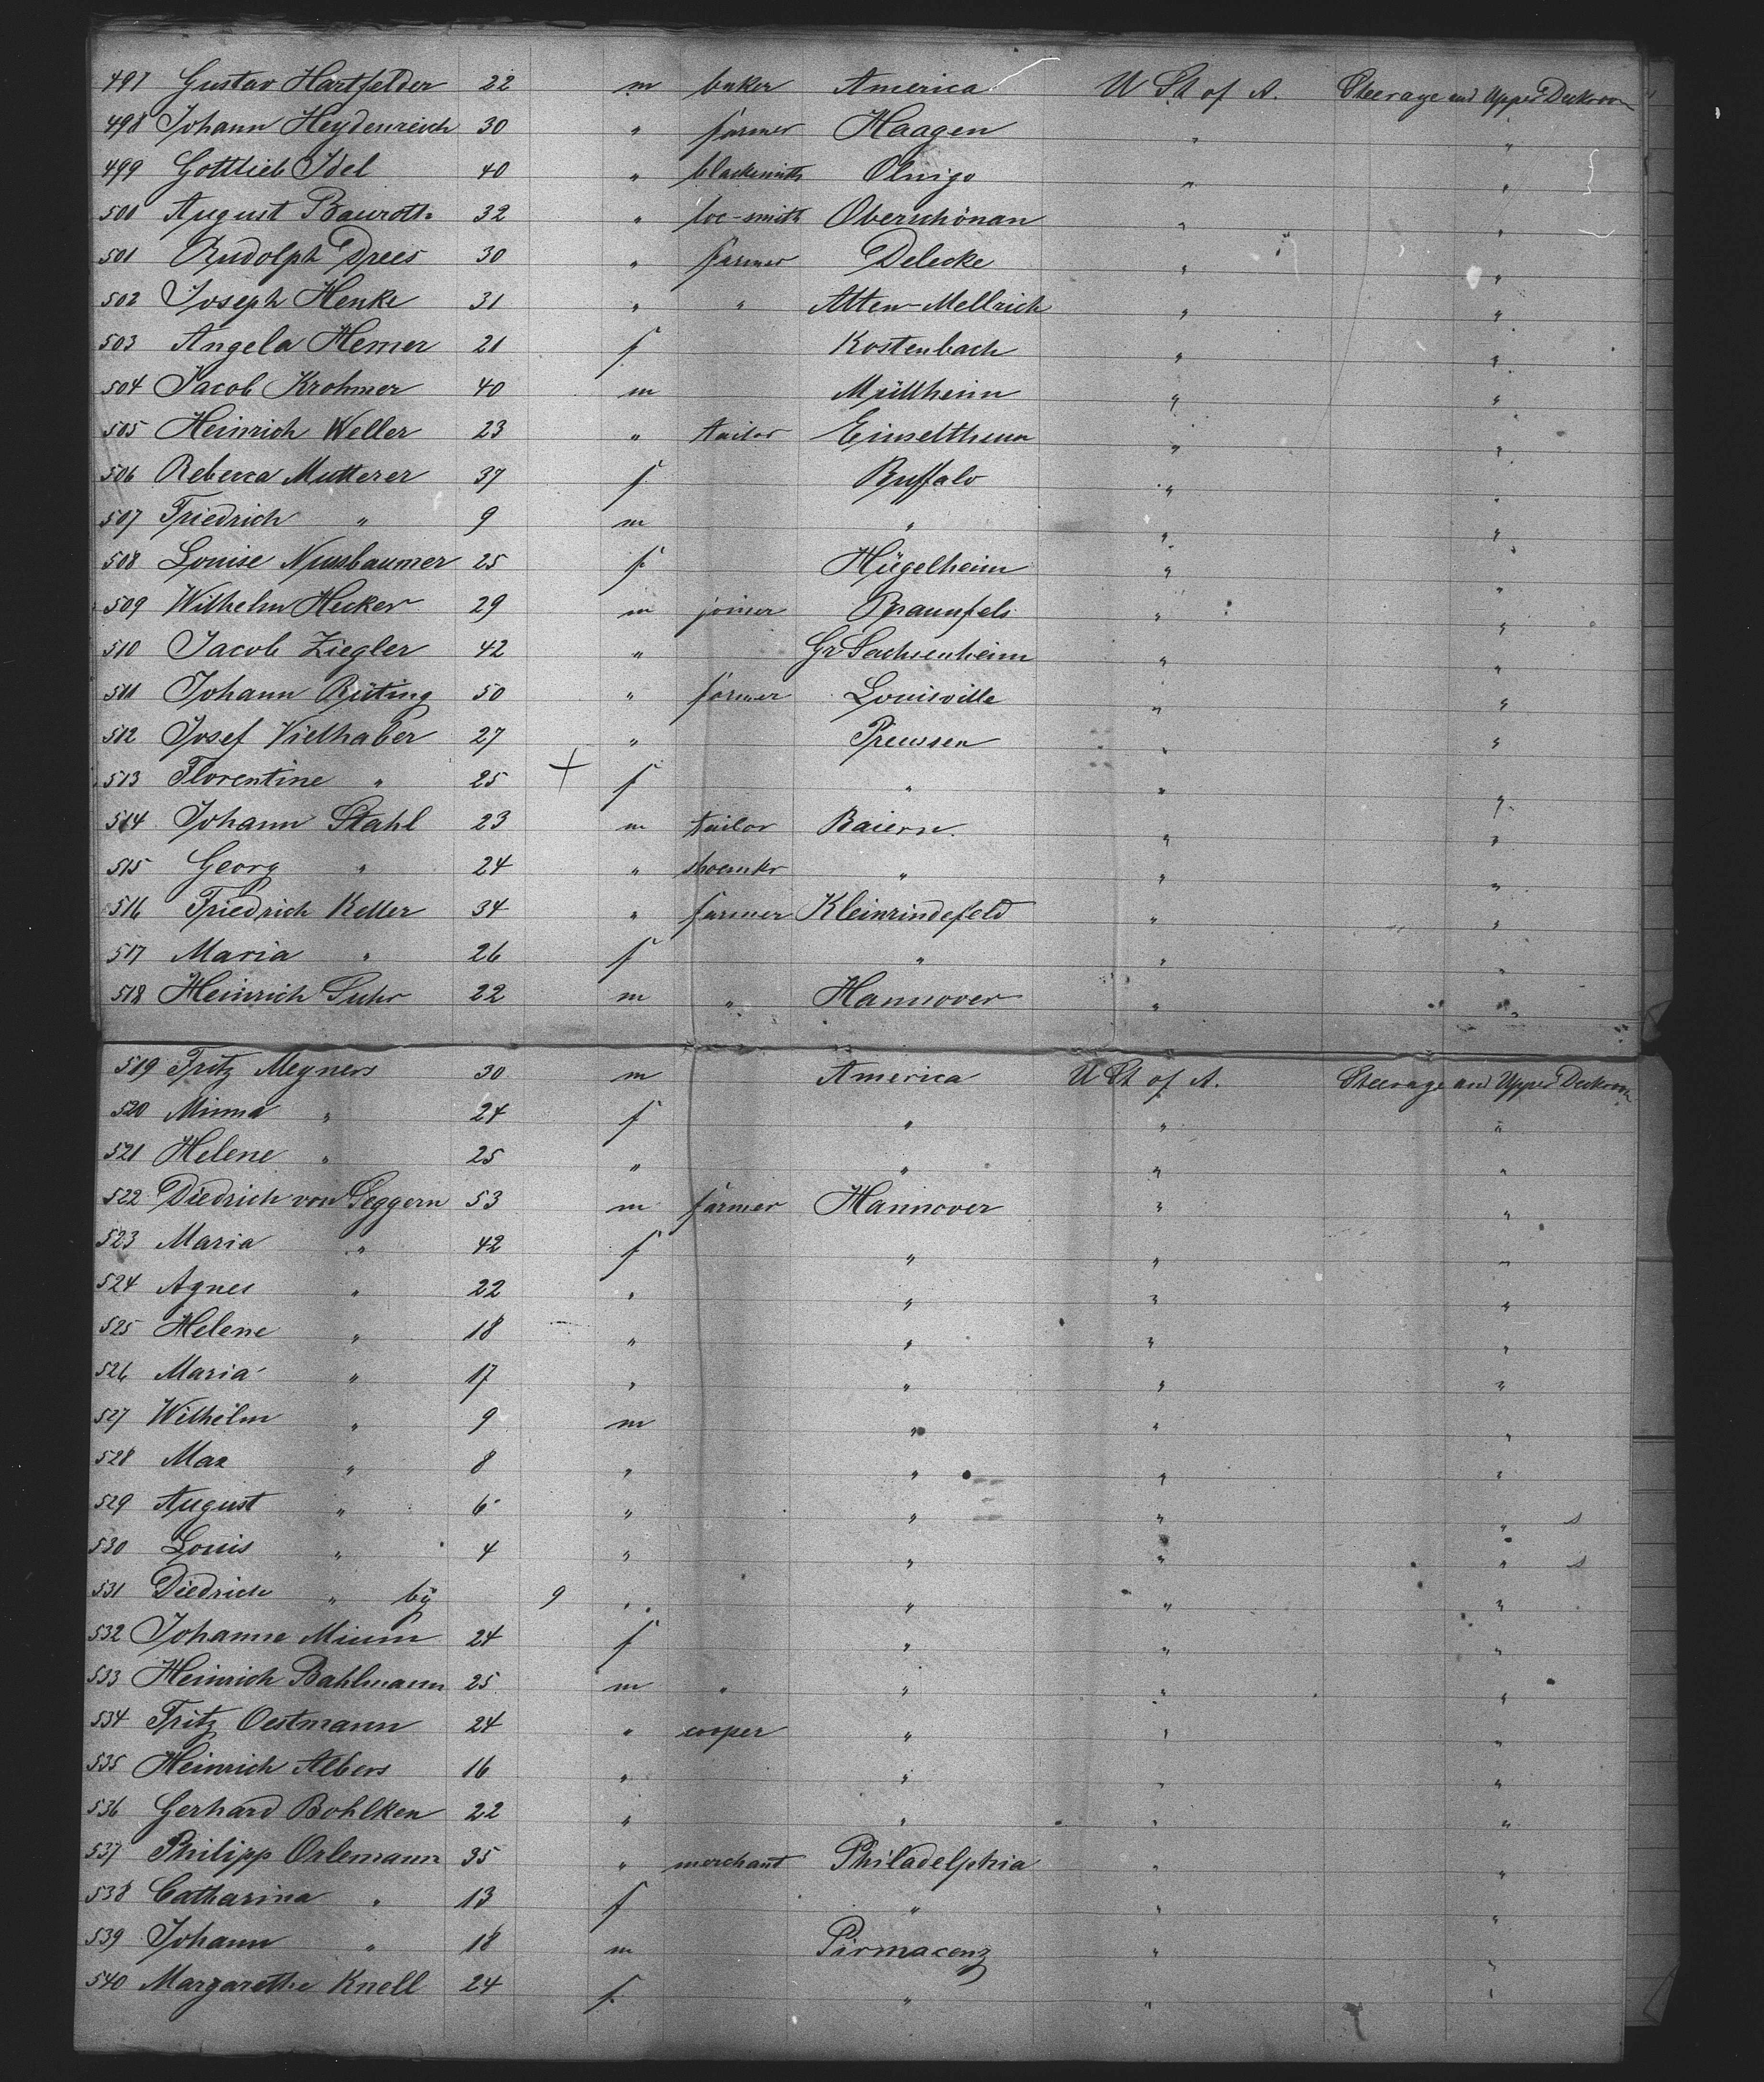 497 Gustav Hartfelder 22 m baker America U St of A. Steerage and Upper Deckroom
498 Johann Heydenreich 30 " farmer Haagen " "
499 Gottlieb Idel 40 " blacksmith " "
500 August Bauroth 32 " loc-smith Oberschönan " "
501 Rudolph Drees 30 " farmer Delecke " "
502 Joseph Henke 31 " " Alten-Mellrich " "
503 Angela Hemer 21 f Kostenbach " "
504 Jacob Krohmer 40 m Müllheim " "
505 Heinrich Weller 23 " tailor Einselthum " "
506 Rebecca Mutterer 37 f Buffalo " "
507 Friedrich " 9 m " " "
508 Louise Nussbaumer 25 f Hügelheim " "
509 Wilhelm Hecker 29 m joiner Braunfels " "
510 Jacob Ziegler 42 " Gr Sachsenheim " "
511 Johann Rüting 50 " farmer Louisville " "
512 Josef Vielhaber 27 " Preussen " "
513 Florentine " 25 + f " " "
514 Johann Stahl 23 m tailor Baiern " "
515 Georg " 24 " shoemkr " " "
516 Friedrich Keller 34 " farmer Kleinrindefeld " "
517 Maria " 26 f " " "
518 Heinrich Suhr 22 m " Hannover " "
519 Fritz Meyners 30 m America U St of A. Steerage and Upper Deckroom
520 Minna " 24 f " " "
521 Helene " 25 " " " "
522 Diedrich von Seggern 53 m farmer Hannover " "
523 Maria " 42 f " " "
524 Agnes " 22 " " " "
525 Helene " 18 " " " "
526 Maria " 17 " " " "
527 Wilhelm " 9 m " " "
528 Max " 8 " " " "
529 August " 6 " " " " s
530 Louis " 4 " " " " s
531 Diedrich " by 9 " " " "
532 Johanne 24 f " " "
533 Heinrich Bahlmann 25 m " " " "
534 Fritz Oestmann 24 " cooper " " "
535 Heinrich Albers 16 " " " "
536 Gerhard Bohlken 22 " " " "
537 Philipp Orlemann 35 " merchant Philadelphia " "
538 Catharina " 13 f " " "
539 Johann " 18 m Pirmacenz " "
540 Margarethe Knell 24 f " " "